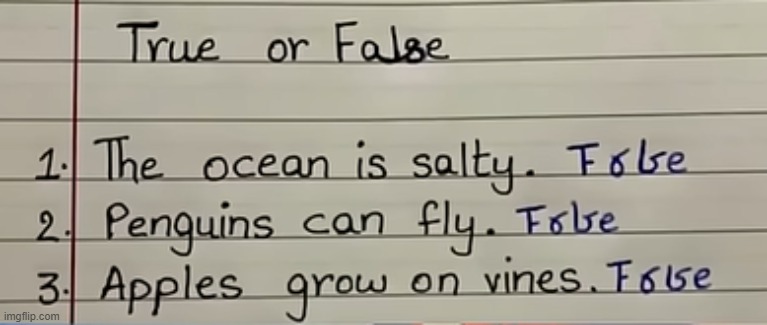 True or False
1. The ocean is salty.
2. Penguins can fly.
3. Apples grow on vines.
imgflip.com